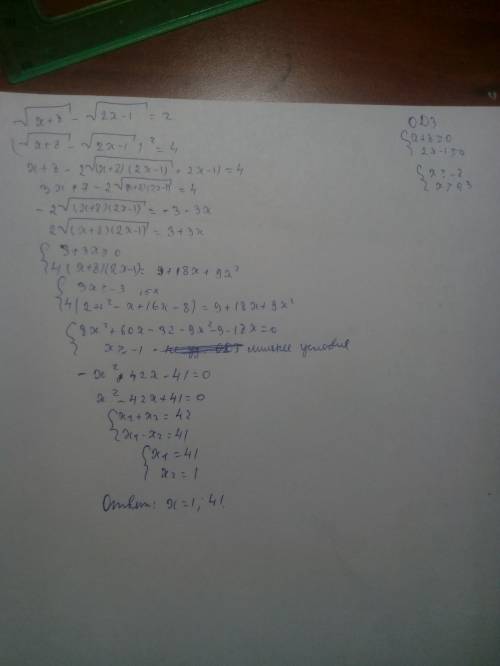 √(x+8) - √(2x-1) = 2
(√(x+8) - √(2x-1))² = 4
x+8 - 2√((x+8)(2x-1)) + 2x-1) = 4
3x+7-2√((x+8)(2x-1)) = 4
-2√((x+8)(2x-1)) = -3-3x
2√((x+8)(2x-1)) = 3+3x
{ 3+3x≥0
4(x+8)(2x-1) = 9+18x+9x²
{ 3x≥-3 15x
4(2x²-x+16x-8) = 9+18x+9x²
{ 8x²+60x-32-9x²-9-18x=0
x≥-1 - лишнее условие
-x²+42x-41=0
x²-42x+41=0
{ x₁+x₂=42
x₁·x₂=41
{ x₁=41
x₂=1
Ответ: x=1; 41.
ОДЗ
{ x+8≥0
2x-1≥0
{ x≥-8
x≥0,5